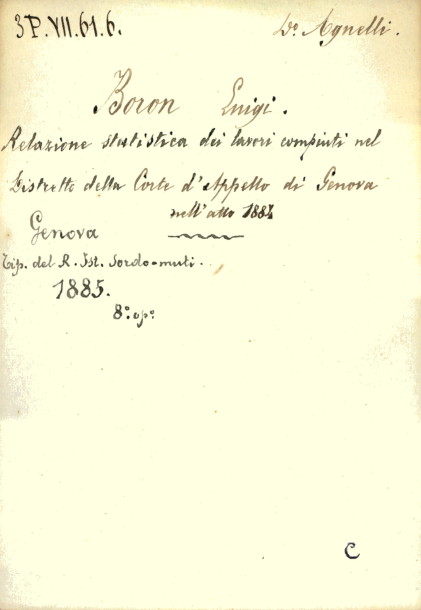 3P.VII.61.6.
Do. Agnelli.
Boron Luigi.
Relazione statistica dei lavori compiuti nel
Distretto della Corte d'Appello di Genova
nell'atto 1884
Genova
Tip. del R. Ist. Sordo-muti.
1885.
8º. opº
C